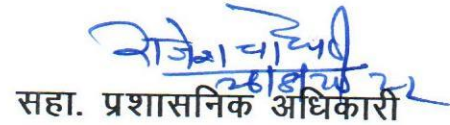 राजेश चौधरी
सहा. प्रशासनिक अधिकारी